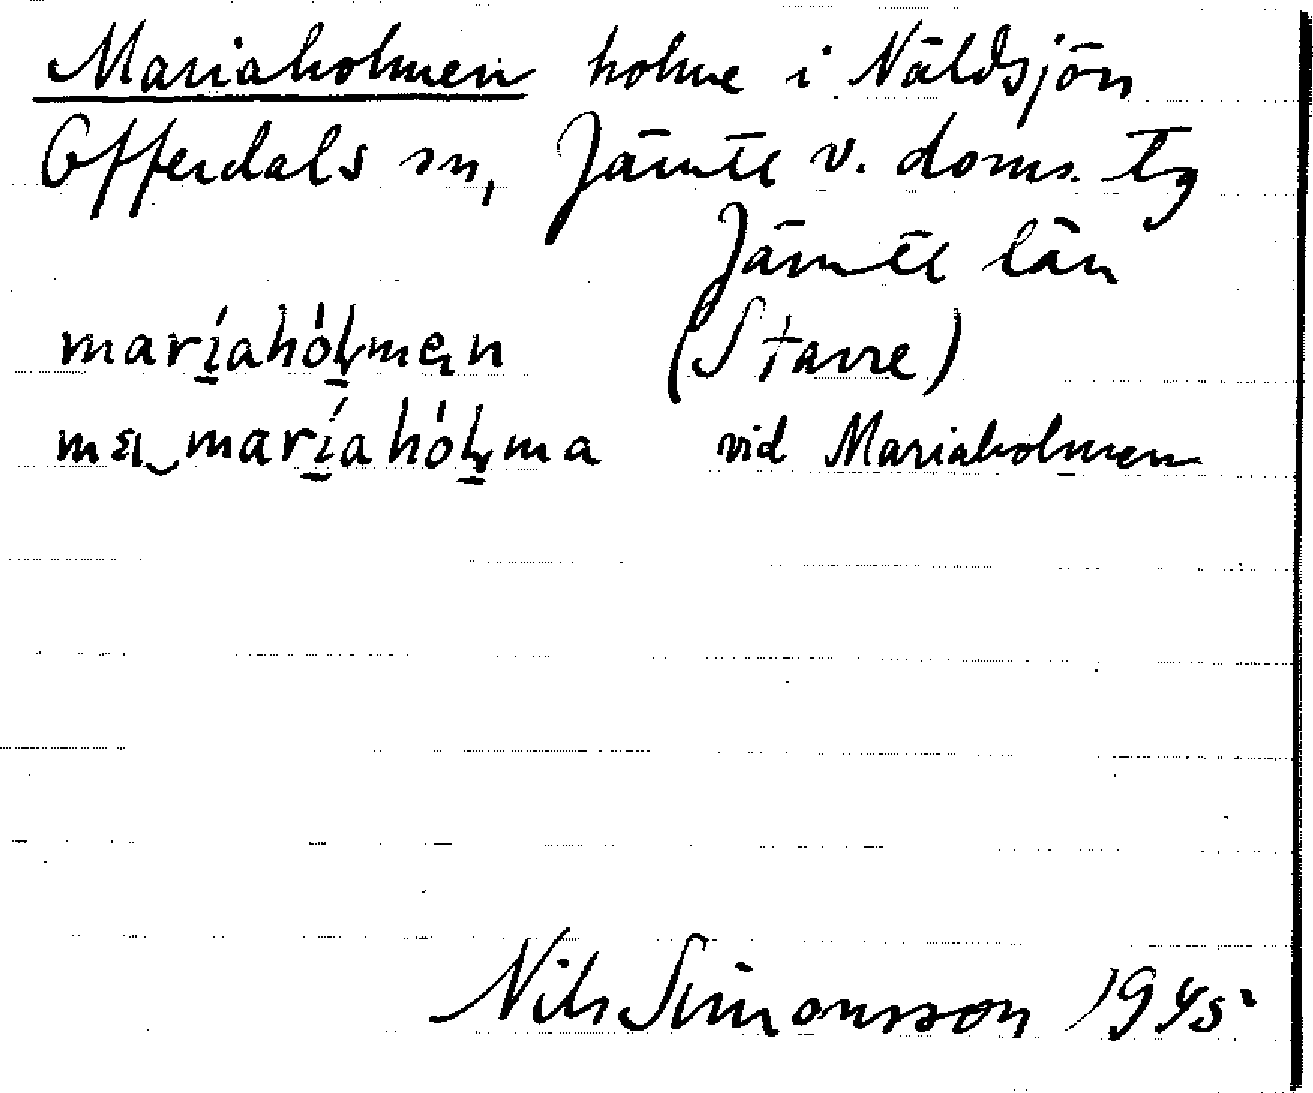 Mariaholmen holme i Näldsjön
Offerdals sn, Jämtl v. doms. tg
Jämtl län
maríahólmen (Stavre)
mę maríahólma vid Mariaholmen
Nils Simonsson 1945